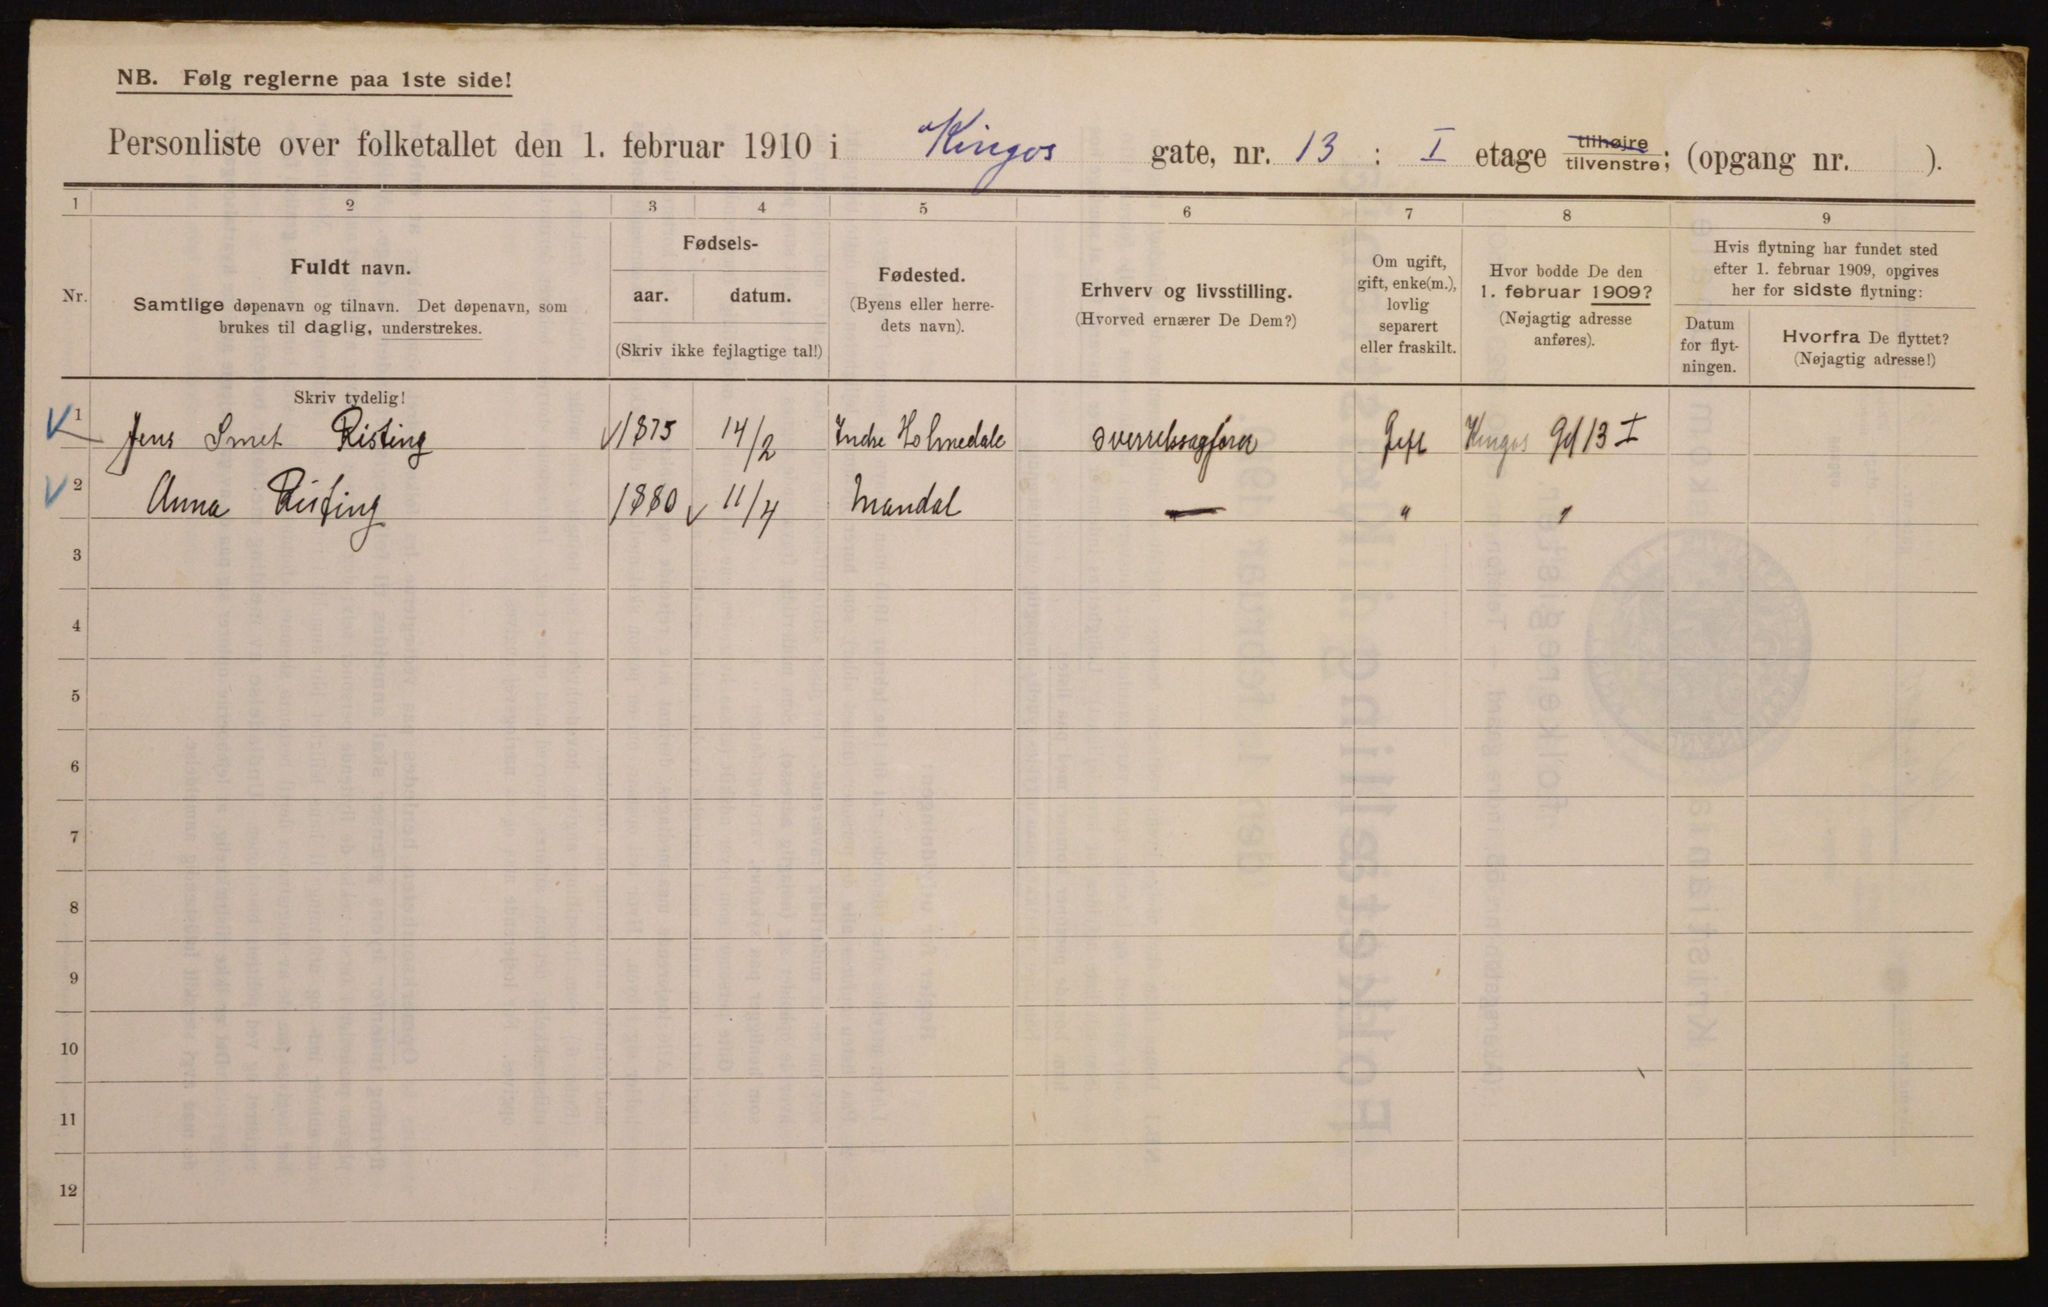 NB. Følg reglerne paa 1ste side!
Personliste over folketallet den 1. februar 1910 i Kingos gate, nr. 13 : I etage tilhøjre tilvenstre; (opgang nr. ).
1 2 3 4 5 6 7 8 9
Nr.
Fuldt navn.
Samtlige døpenavn og tilnavn. Det døpenavn, som
brukes til daglig, understrekes.
Fødsels-
aar. datum.
(Skriv ikke fejlagtige tal!)
Fødested.
(Byens eller herre-
dets navn).
Erhverv og livsstilling.
(Hvorved ernærer De Dem?)
Om ugift,
gift, enke(m.),
lovlig
separert
eller fraskilt.
Hvor bodde De den
1. februar 1909?
(Nøjagtig adresse
anføres).
Hvis flytning har fundet sted
efter 1. februar 1909, opgives
her for sidste flytning:
Datum
for flyt-
ningen.
Hvorfra De flyttet?
(Nøjagtig adresse!)
Skriv tydelig!
1 Jens Smet Risting 1875 14/2 Indre Holmedale overretssagfører Gift Kingos Gd 13 I
2 Anna Risting 1880 11/4 Mandal — " "
3
4
5
6
7
8
9
10
11
12